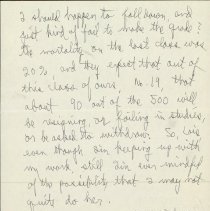 I should happen to fall down, and
just kind of fail to make the grade?
The mortality on the last class was
20%, and they expect that out of
this class of ours, No. 19, that
about 90 out of the 500 will
be resigning or failing in studies,
or be asked to withdraw. So, Lois
even though I'm keeping up with
my work still I'm ever mindful
of the possibility that I may not
quite do her.